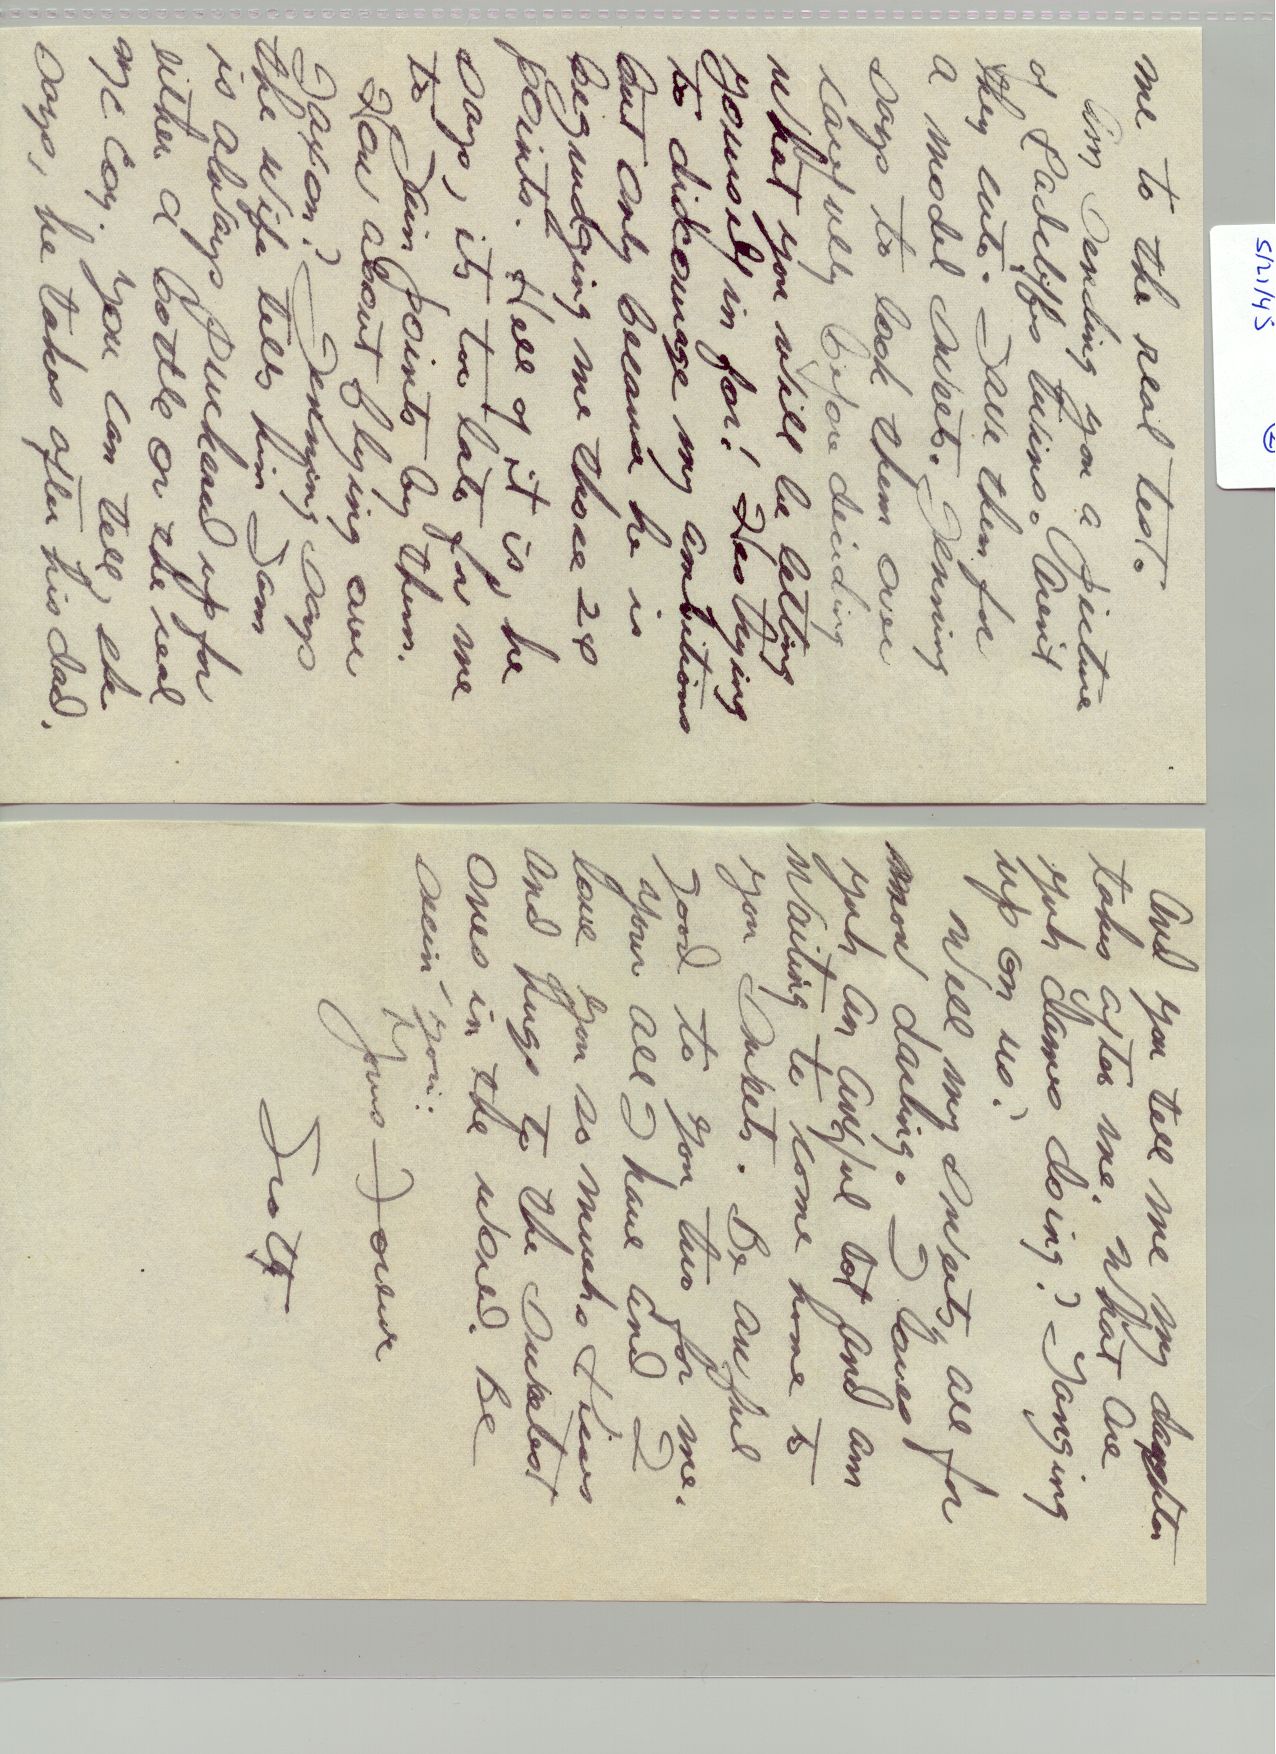 5/21/45 ②
me to the real test.
Am sending you a picture
of Radcliffes twins. Arent
they cute. Save them for
a model Sweets. Jenning
says to look them over
carefully before deciding
what you will be letting
yourself in for! Hes trying
to discourage my ambitions
but only because he is
begrudging me those 24
points. Hell of it is, he
says, its too late for me
to gain points by them.
How about flying over
Saxon? Jenning says
the wife tells him Sam
is always puckered up for
either a bottle or the real
mc Coy. You can tell, she
says, he takes after his dad.
And you tell me my daughter
takes after me. What are
yuh dames doing? Ganging
up on us?
Well my Sweets, all for
now darling. I loves
yuh an awful lot and am
waiting to come home to
you Sweets. Be awful
good to you two for me.
Your all I have and I
love you so much. Kisses
and hugs to the sweetest
ones in the world. Be
seein' you.
Yours Forever